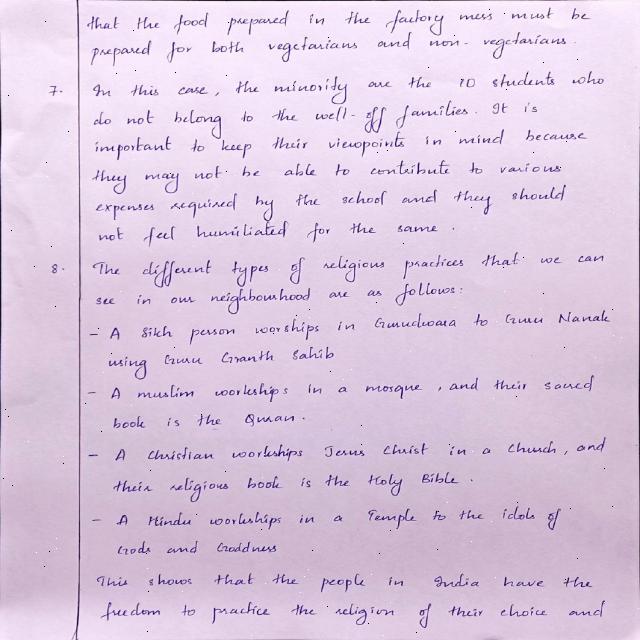 that the food prepared in the factory mess must be
prepared for both vegetarians and non-vegetarians.
7. In this case, the minority are the 10 students who
do not belong to the well-off families. It is
important to keep their viewpoints in mind because
they may not be able to contribute to various
expenses required by the school and they should
not feel humiliated for the same.
8. The different types of religious practices that we can
see in our neighbourhood are as follows:
- A Sikh person worships in Gurudwara to Guru Nanak
using Guru Granth Sahib
- A muslim workships in a mosque, and their sacred
book is the Quran.
- A Christian workships Jesus Christ in a Church, and
their religious book is the Holy Bible.
- A Hindu workships in a Temple to the idols of
Gods and Goddness
This shows that the people in India have the
freedom to practice the religion of their choice and